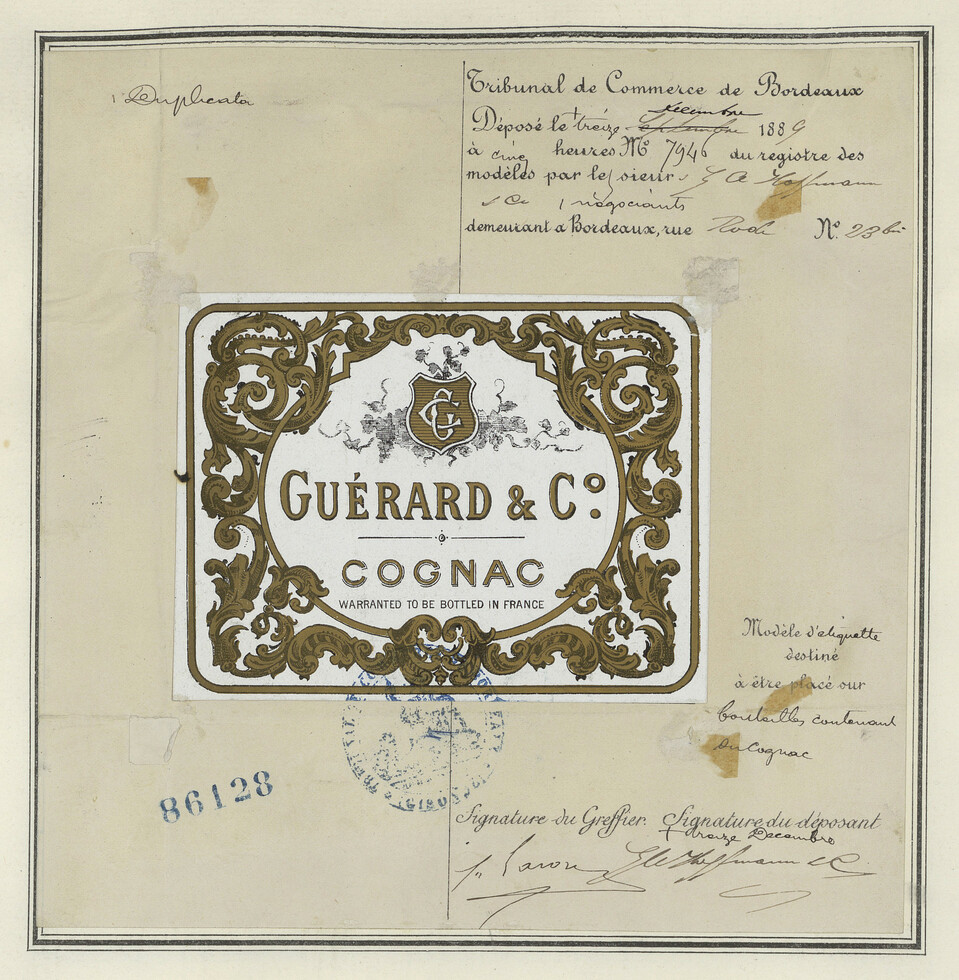 Duplicata
Tribunal de Commerce de Bordeaux
décembre
Déposé le + treize septembre 1889
à cinq heures No 7946 du registre des
modèles par les sieurs Hoffmann
& Co négociants
demeurant a Bordeaux, rue Rode No. 23 bis
GC
GUÉRARD & Co.
COGNAC
WARRANTED TO BE BOTTLED IN FRANCE
Modèle d'etiquette
destiné
à être placé sur
bouteilles contenant
du Cognac
86128
Signature du Greffier. Signature du déposant
+ treize Decembre
Hoffmann & C